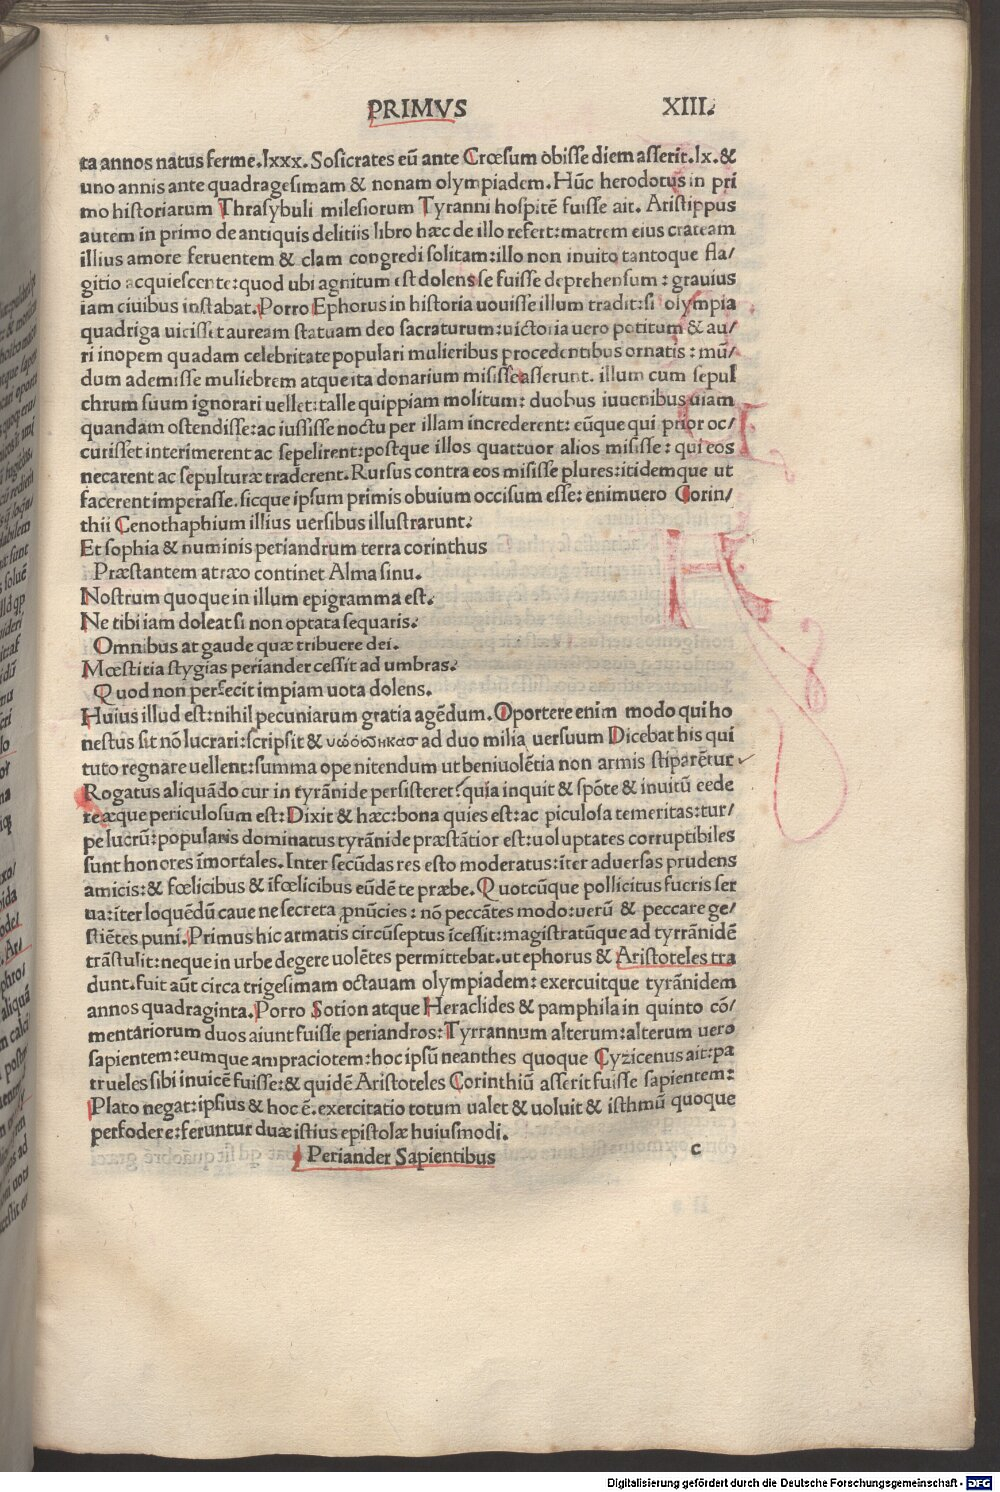 PRIMVS XIII.
ta annos natus ferme.lxxx. Sosicrates eũ ante Crœsum obisse diem asserit.lx.&
uno annis ante quadragesimam & nonam olympiadem. Hũc herodotus in pri
mo historiarum Thrasybuli milesiorum Tyranni hospitẽ fuisse ait. Aristippus
autem in primo de antiquis delitiis libro hæc de illo refert:matrem eius crateam
illius amore feruentem & clam congredi solitam:illo non inuito tantoque fla/
gitio acquiescente:quod ubi agnitum est dolens se fuisse deprehensum:grauius
iam ciuibus instabat. Porro Ephorus in historia uouisse illum tradit:si olympia
quadriga uicisset auream statuam deo sacraturum:uictoria uero potitum & au/
ri inopem quadam celebritate populari mulieribus procedentibus ornatis:mũ/
dum ademisse muliebrem atque ita donarium misisse asserunt. illum cum sepul
chrum suum ignorari uellet:talle quippiam molitum: duobus iuuenibus uiam
quandam ostendisse:ac iussisse noctu per illam increderent: eũque qui prior oc/
curisset interimerent ac sepelirent:postque illos quattuor alios misisse: qui eos
necarent ac sepulturæ traderent. Rursus contra eos misisse plures:itidemque ut
facerent imperasse. sicque ipsum primis obuium occisum esse: enimuero Corin/
thii Cenothaphium illius uersibus illustrarunt:
Et sophia & numinis periandrum terra corinthus
Præstantem atræo continet Alma sinu.
Nostrum quoque in illum epigramma est.
Ne tibi iam doleat si non optata sequaris:
Omnibus at gaude quæ tribuere dei.
Mœstitia stygias periander cessit ad umbras:
Quod non perfecit impiam uota dolens.
Huius illud est:nihil pecuniarum gratia agẽdum. Oportere enim modo qui ho
nestus sit nõ lucrari:scripsit & ad duo milia uersuum Dicebat his qui
tuto regnare uellent:summa ope nitendum ut beniuolẽtia non armis stiparẽtur
Rogatus aliquãdo cur in tyrãnide persisteret? quia inquit & spõte & inuitũ cede
re æque periculosum est: Dixit & hæc:bona quies est:ac piculosa temeritas:tur/
pe lucrũ:popularis dominatus tyrãnide præstãtior est:uoluptates corruptibiles
sunt honores ĩmortales. Inter secũdas res esto moderatus:ĩter aduersas prudens
amicis:& fœlicibus & ĩfœlicibus eũdẽ te præbe. Quotcũque pollicitus fueris ser
ua:ĩter loquẽdũ caue ne secreta ꝓnũcies: nõ peccãtes modo:uerũ & peccare ge/
stiẽtes puni. Primus hic armatis circũseptus ĩcessit:magistratũque ad tyrrãnidẽ
trãstulit:neque in urbe degere uolẽtes permittebat. ut ephorus & Aristoteles tra
dunt. fuit aũt circa trigesimam octauam olympiadem: exercuitque tyrãnidem
annos quadraginta. Porro Sotion atque Heraclides & pamphila in quinto cõ/
mentariorum duos aiunt fuisse periandros: Tyrrannum alterum:alterum uero
sapientem:eumque ampraciotem:hoc ipsũ neanthes quoque Cyzicenus ait:pa
trueles sibi inuicẽ fuisse:& quidẽ Aristoteles Corinthiũ asserit fuisse sapientem:
Plato negat:ipsius & hoc ẽ. exercitatio totum ualet & uoluit & isthmũ quoque
perfodere:feruntur duæ istius epistolæ huiusmodi.
Periander Sapientibus c
Digitalisierung gefördert durch die Deutsche Forschungsgemeinschaft - DFG